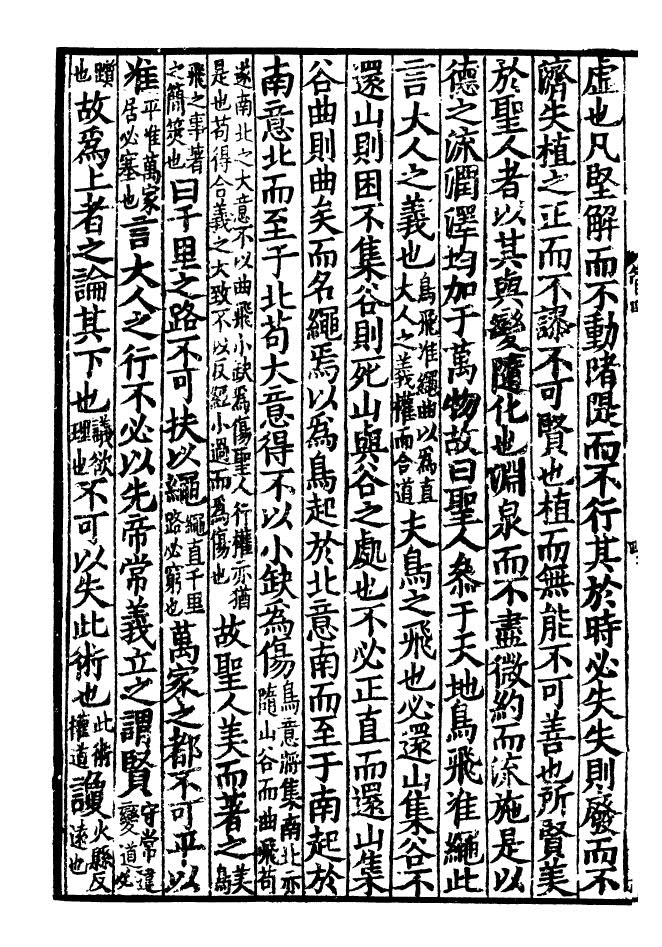 虛也凡堅解而不動陼隄而不行其於時必失失則廢而不
濟失植之正而不謬不可賢也植而無能不可善也所賢美
於聖人者以其與變隨化也淵泉而不盡微約而流施是以
德之流潤澤均加于萬物故曰聖人叅于天地鳥飛准繩此
言大人之義也鳥飛准繩曲以為直大人之義權而合道夫鳥之飛也必還山集谷不
還山則困不集谷則死山與谷之處也不必正直而還山集
谷曲則曲矣而名繩焉以為鳥起於北意南而至于南起於
南意北而至于北苟大意得不以小缺為傷鳥意將集南北亦隨山谷而曲飛苟
遂南北之大意不以曲飛小缺為傷聖人行權亦猶是也苟得合義之大致不以反經小過而為傷也故聖人美而著之美鳥
飛之事著之簡筴也曰千里之路不可扶以繩繩直千里路必窮也萬家之都不可平以
准平准萬家居必塞也言大人之行不必以先帝常義立之謂賢守常違變道必
躓也故為上者之論其下也議欲理也不可以失此術也此術權道讂火縣反遠也